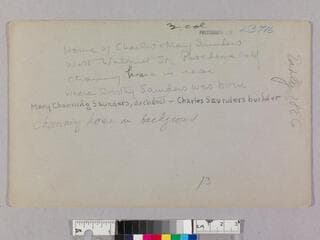 3 col
Home of Charles + Mary Saunders
West Walnut St. Pasadena Calif
Channing house is near
where Dorothy Saunders was born
Mary Channing Saunders, architect - Charles Saunders builder
Channing house in background
Early 1886
13